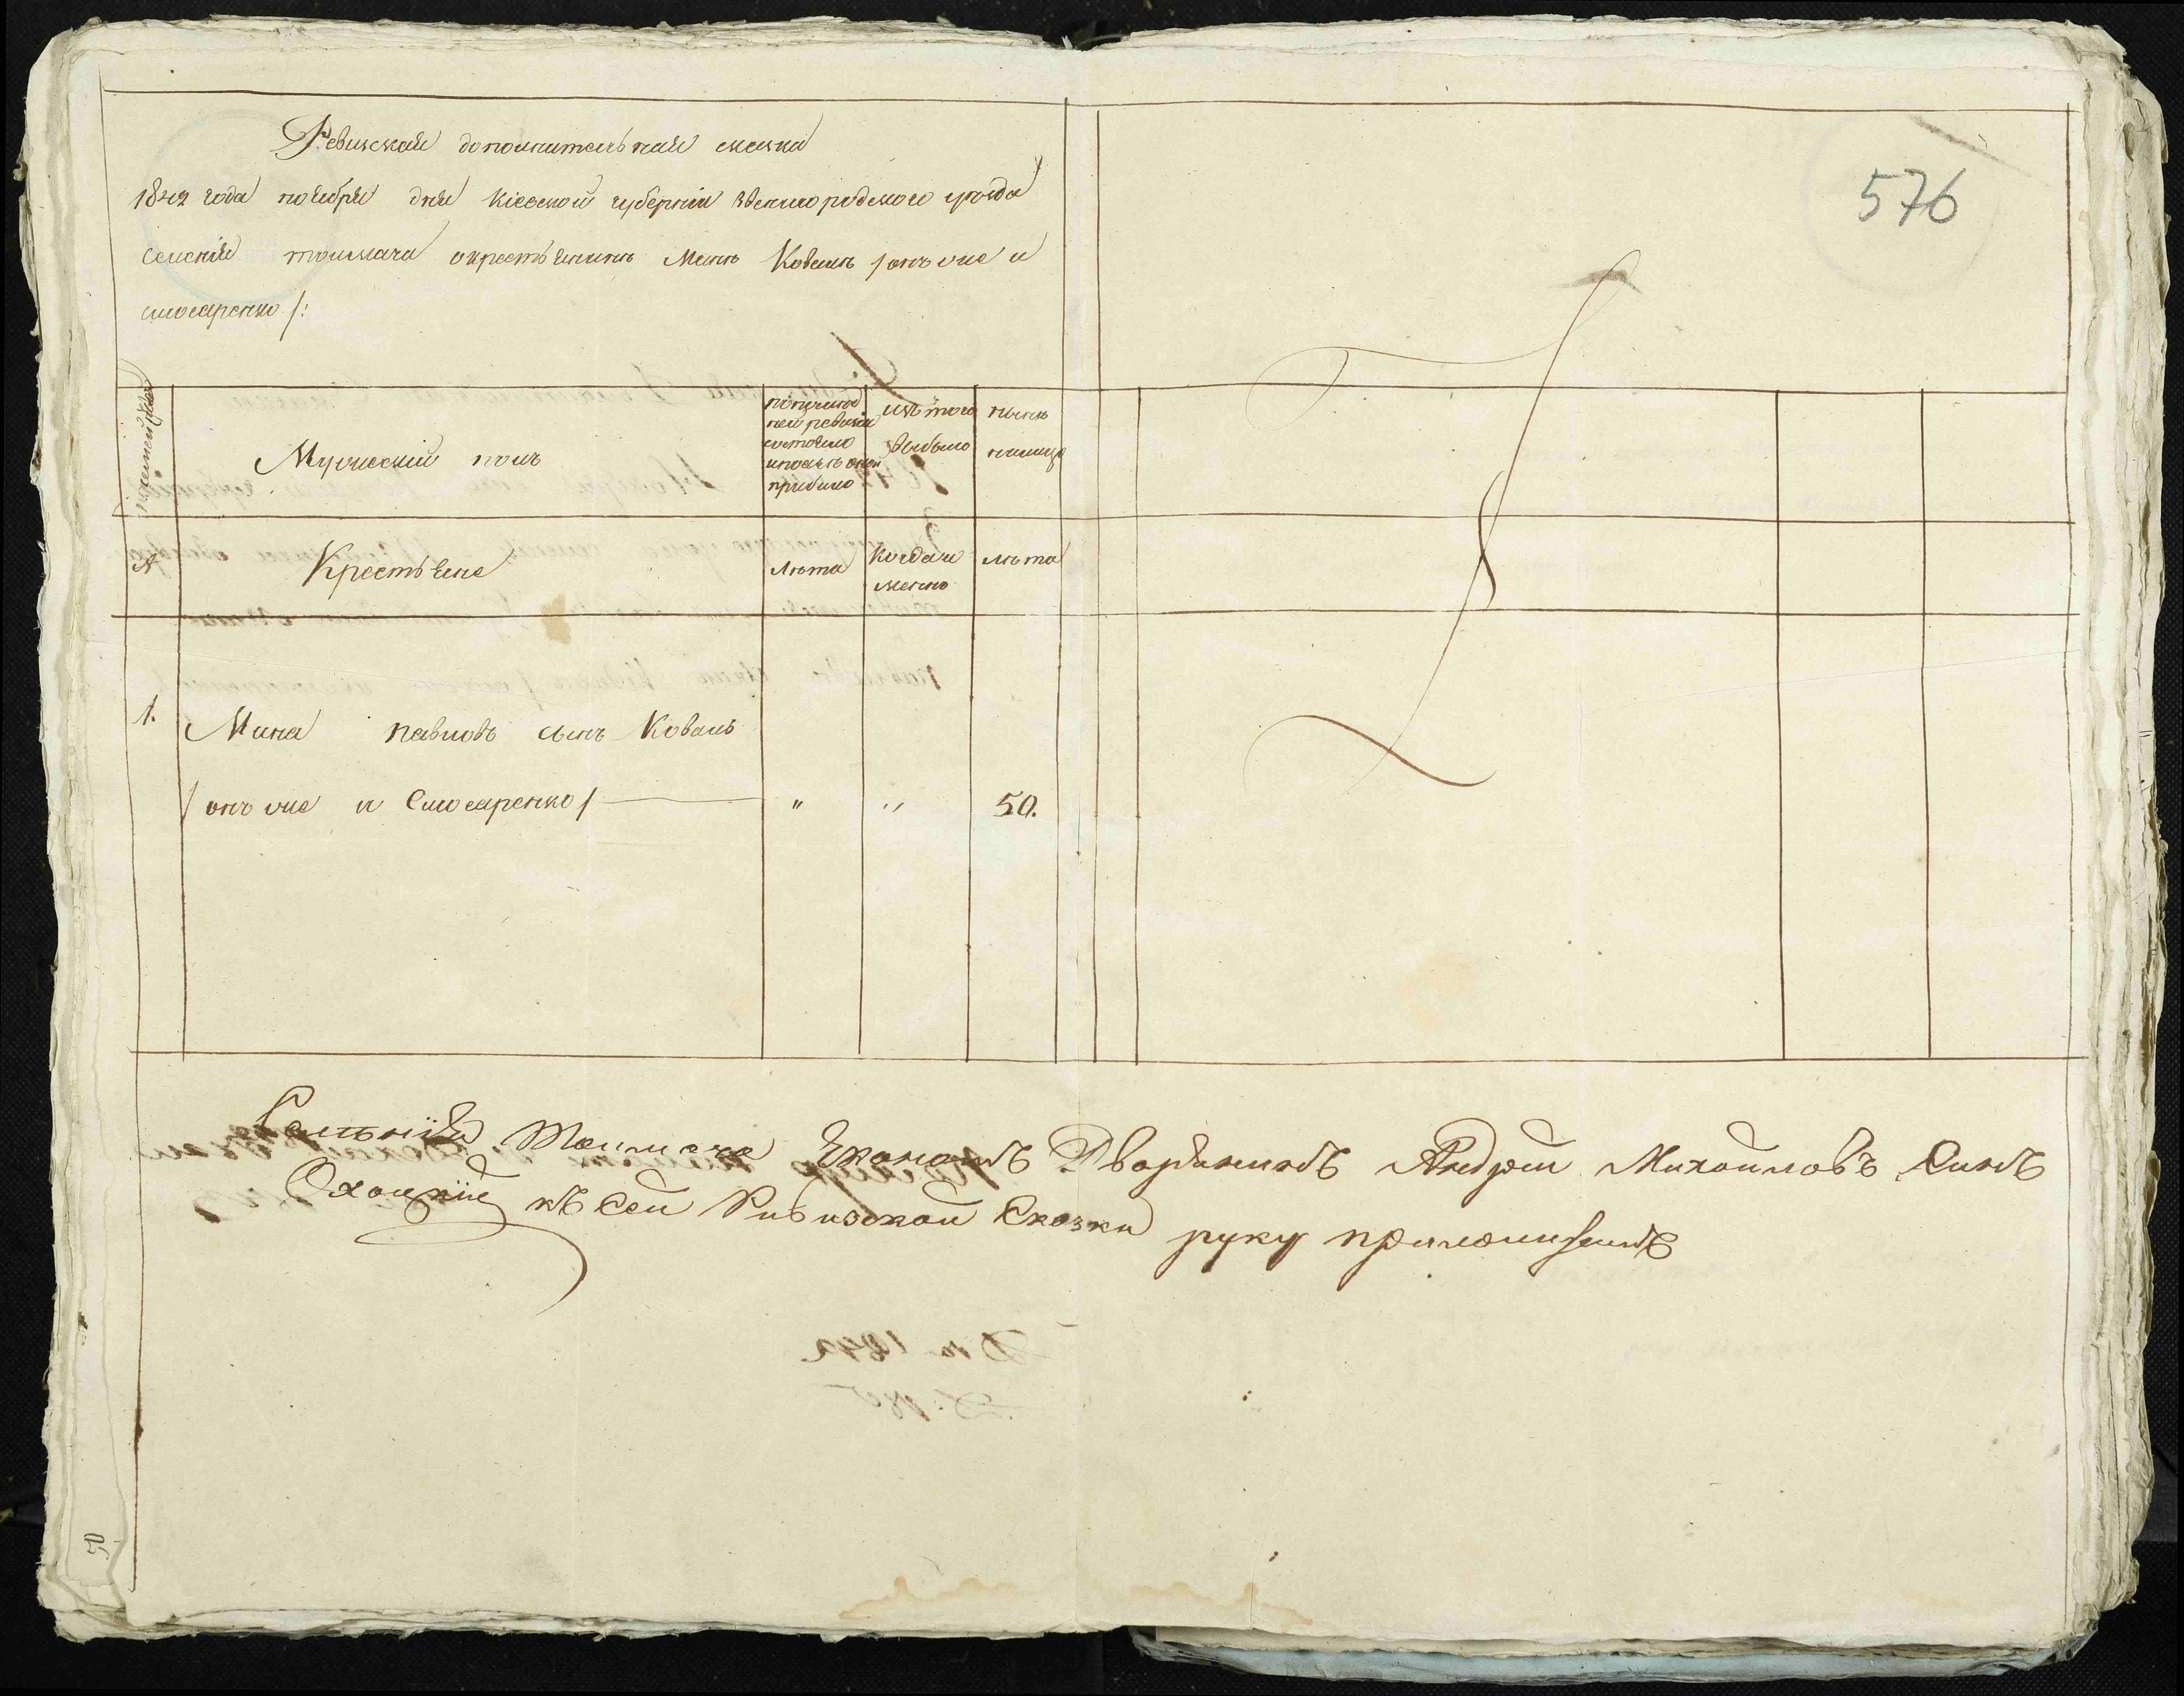 576
Ревизская дополнительная сказка
1842 года ноября дня Кіевской губерніи Звенигородского уезда
Селенія толмача окрестьянинѣ Минѣ Ковалѣ /онъ же и
слюсаренко/:
Мужескій полъ
по последней ревизіи состояло и после оной прибыло
изъ того выбыло
нынѣ налицо
Крестьяне
лѣта
когда именно
лѣта
1.
Мина павловъ сынъ Коваль
/онъ же и Слюсаренко/ " " 50.
Селенія Толмача Економъ Дворянинъ Андрей Михайловъ Синъ
къ сей Ривизской Сказки руку приложилъ
50